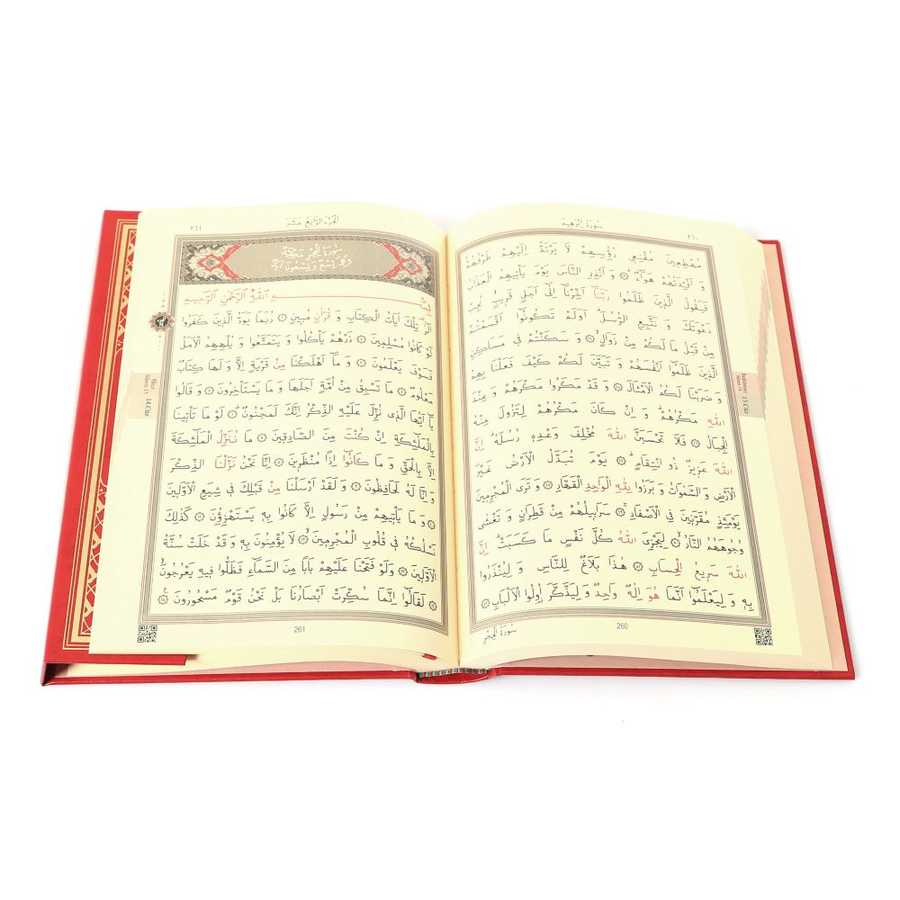 سُورَةُ اِبْرٰهِيمَ ٢٦٠
مُهْطِعِينَ مُقْنِعِي رُؤُسِهِمْ لَا يَرْتَدُّ اِلَيْهِمْ طَرْفُهُمْ
وَ اَفْـِٔدَتُهُمْ هَوَاءٌ ۞ وَ اَنْذِرِ النَّاسَ يَوْمَ يَأْتِيهِمُ الْعَذَابُ
فَيَقُولُ الَّذِينَ ظَلَمُوا رَبَّنَا اَخِّرْنَا اِلٰى اَجَلٍ قَرِيبٍ نُجِبْ
دَعْوَتَكَ وَ نَتَّبِعِ الرُّسُلَ اَوَلَمْ تَكُونُوا اَقْسَمْتُمْ
مِنْ قَبْلُ مَا لَكُمْ مِنْ زَوَالٍ ۞ وَ سَكَنْتُمْ فِي مَسَاكِنِ
الَّذِينَ ظَلَمُوا اَنْفُسَهُمْ وَ تَبَيَّنَ لَكُمْ كَيْفَ فَعَلْنَا بِهِمْ
وَ ضَرَبْنَا لَكُمُ الْاَمْثَالَ ۞ وَ قَدْ مَكَرُوا مَكْرَهُمْ وَ عِنْدَ
اللّٰهِ مَكْرُهُمْ وَ اِنْ كَانَ مَكْرُهُمْ لِتَزُولَ مِنْهُ
الْجِبَالُ ۞ فَلَا تَحْسَبَنَّ اللّٰهَ مُخْلِفَ وَعْدِهِ رُسُلَهُ اِنَّ
اللّٰهَ عَزِيزٌ ذُو انْتِقَامٍ ۞ يَوْمَ تُبَدَّلُ الْاَرْضُ غَيْرَ
الْاَرْضِ وَ السَّمٰوَاتُ وَ بَرَزُوا لِلّٰهِ الْوَاحِدِ الْقَهَّارِ ۞ وَ تَرَى الْمُجْرِمِينَ
يَوْمَئِذٍ مُقَرَّنِينَ فِي الْاَصْفَادِ ۞ سَرَابِيلُهُمْ مِنْ قَطِرَانٍ وَ تَغْشٰى
وُجُوهَهُمُ النَّارُ ۞ لِيَجْزِيَ اللّٰهُ كُلَّ نَفْسٍ مَا كَسَبَتْ اِنَّ
اللّٰهَ سَرِيعُ الْحِسَابِ ۞ هٰذَا بَلَاغٌ لِلنَّاسِ وَ لِيُنْذَرُوا
بِهِ وَ لِيَعْلَمُوا اَنَّمَا هُوَ اِلٰهٌ وَاحِدٌ وَ لِيَذَّكَّرَ اُولُوا الْاَلْبَابِ ۞
سُورَةُ الْحِجْرِ
260
اَلْجُزْءُ الرَّابِعُ عَشَرَ ٢٦١
سُورَةُ الْحِجْرِ مَكِّيَّةٌ
وَ هِيَ تِسْعٌ وَ تِسْعُونَ اٰيَةً
بِسْمِ اللّٰهِ الرَّحْمٰنِ الرَّحِيمِ
الٓرٰ تِلْكَ اٰيَاتُ الْكِتَابِ وَ قُرْاٰنٍ مُبِينٍ ۞ رُبَمَا يَوَدُّ الَّذِينَ كَفَرُوا
لَوْ كَانُوا مُسْلِمِينَ ۞ ذَرْهُمْ يَأْكُلُوا وَ يَتَمَتَّعُوا وَ يُلْهِهِمُ الْاَمَلُ
فَسَوْفَ يَعْلَمُونَ ۞ وَ مَا اَهْلَكْنَا مِنْ قَرْيَةٍ اِلَّا وَ لَهَا كِتَابٌ
مَعْلُومٌ ۞ مَا تَسْبِقُ مِنْ اُمَّةٍ اَجَلَهَا وَ مَا يَسْتَأْخِرُونَ ۞ وَ قَالُوا
يَا اَيُّهَا الَّذِي نُزِّلَ عَلَيْهِ الذِّكْرُ اِنَّكَ لَمَجْنُونٌ ۞ لَوْ مَا تَأْتِينَا
بِالْمَلٰئِكَةِ اِنْ كُنْتَ مِنَ الصَّادِقِينَ ۞ مَا نُنَزِّلُ الْمَلٰئِكَةَ
اِلَّا بِالْحَقِّ وَ مَا كَانُوا اِذًا مُنْظَرِينَ ۞ اِنَّا نَحْنُ نَزَّلْنَا الذِّكْرَ
وَ اِنَّا لَهُ لَحَافِظُونَ ۞ وَ لَقَدْ اَرْسَلْنَا مِنْ قَبْلِكَ فِي شِيَعِ الْاَوَّلِينَ
۞ وَ مَا يَأْتِيهِمْ مِنْ رَسُولٍ اِلَّا كَانُوا بِهِ يَسْتَهْزِؤُنَ ۞ كَذٰلِكَ
نَسْلُكُهُ فِي قُلُوبِ الْمُجْرِمِينَ ۞ لَا يُؤْمِنُونَ بِهِ وَ قَدْ خَلَتْ سُنَّةُ
الْاَوَّلِينَ ۞ وَلَوْ فَتَحْنَا عَلَيْهِمْ بَابًا مِنَ السَّمَاءِ فَظَلُّوا فِيهِ يَعْرُجُونَ
۞ لَقَالُوا اِنَّمَا سُكِّرَتْ اَبْصَارُنَا بَلْ نَحْنُ قَوْمٌ مَسْحُورُونَ ۞
261